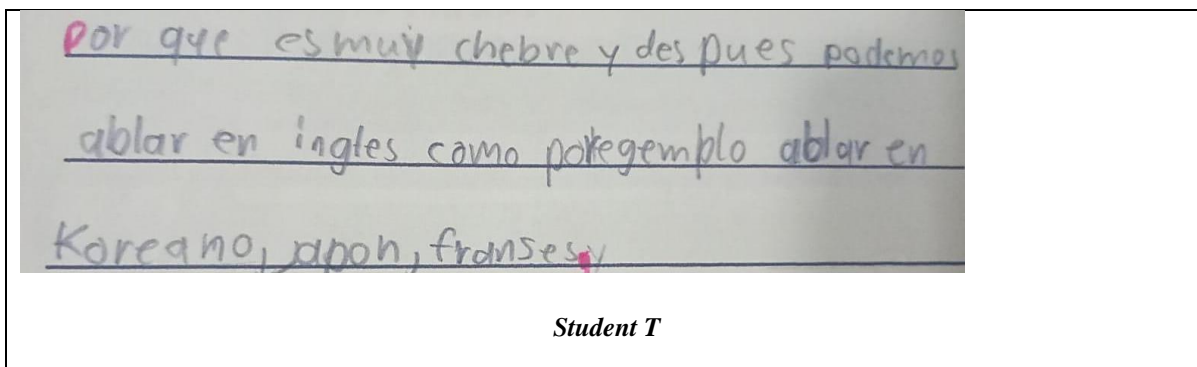 Por que es muy chebre y des pues podemos
ablar en ingles como poregemplo ablar en
Koreano, japon, franses y
Student T